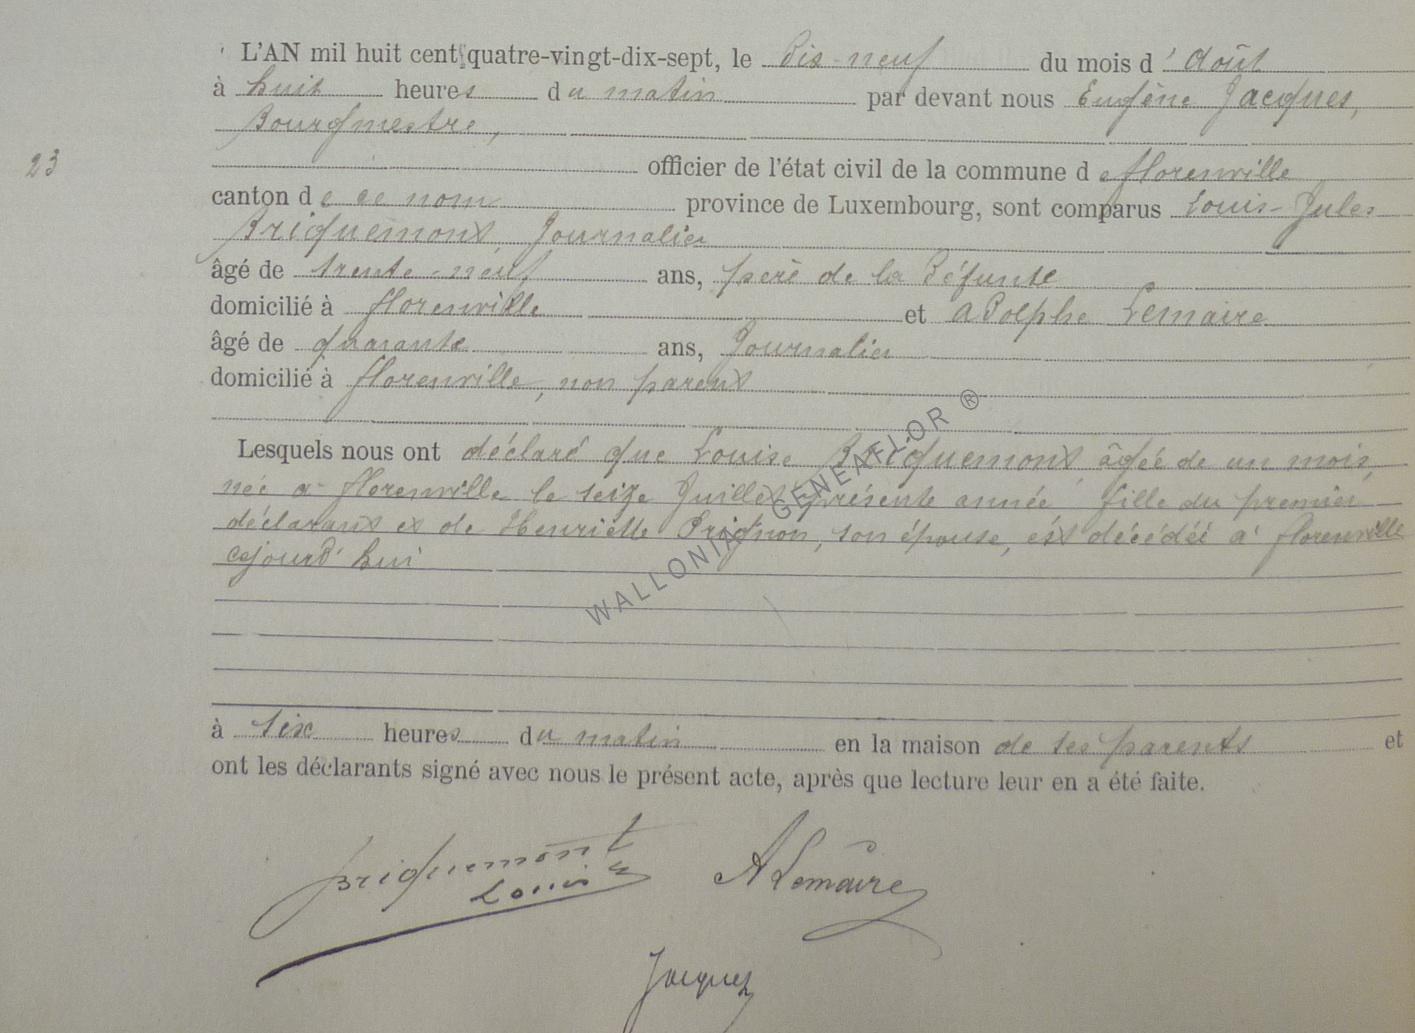 L'AN mil huit cent quatre-vingt-dix-sept, le Dix-neuf du mois d'Août
à huit heures du matin par devant nous Eugène Jacques,
Bourgmestre,
23
officier de l'état civil de la commune de florenville
canton de ce nom province de Luxembourg, sont comparus Louis-Jules
Briquemont, Journalier
âgé de trente-neuf ans, père de la Défunte
domicilié à florenville et aDolphe Lemaire
âgé de quarante ans, Journalier
domicilié à florenville, non parent
Lesquels nous ont déclaré que Louise Briquemont, âgée de un mois,
née à florenville le seize Juillet présente année, fille du premier
déclarant et de Henriette Prignon, son épouse, est décédée à florenville
cejourd'hui
à six heures du matin en la maison de ses parents et
ont les déclarants signé avec nous le présent acte, après que lecture leur en a été faite.
Briquemont
Louis
ALemaire
Jacques
WALLONIA GENEAFLOR ®